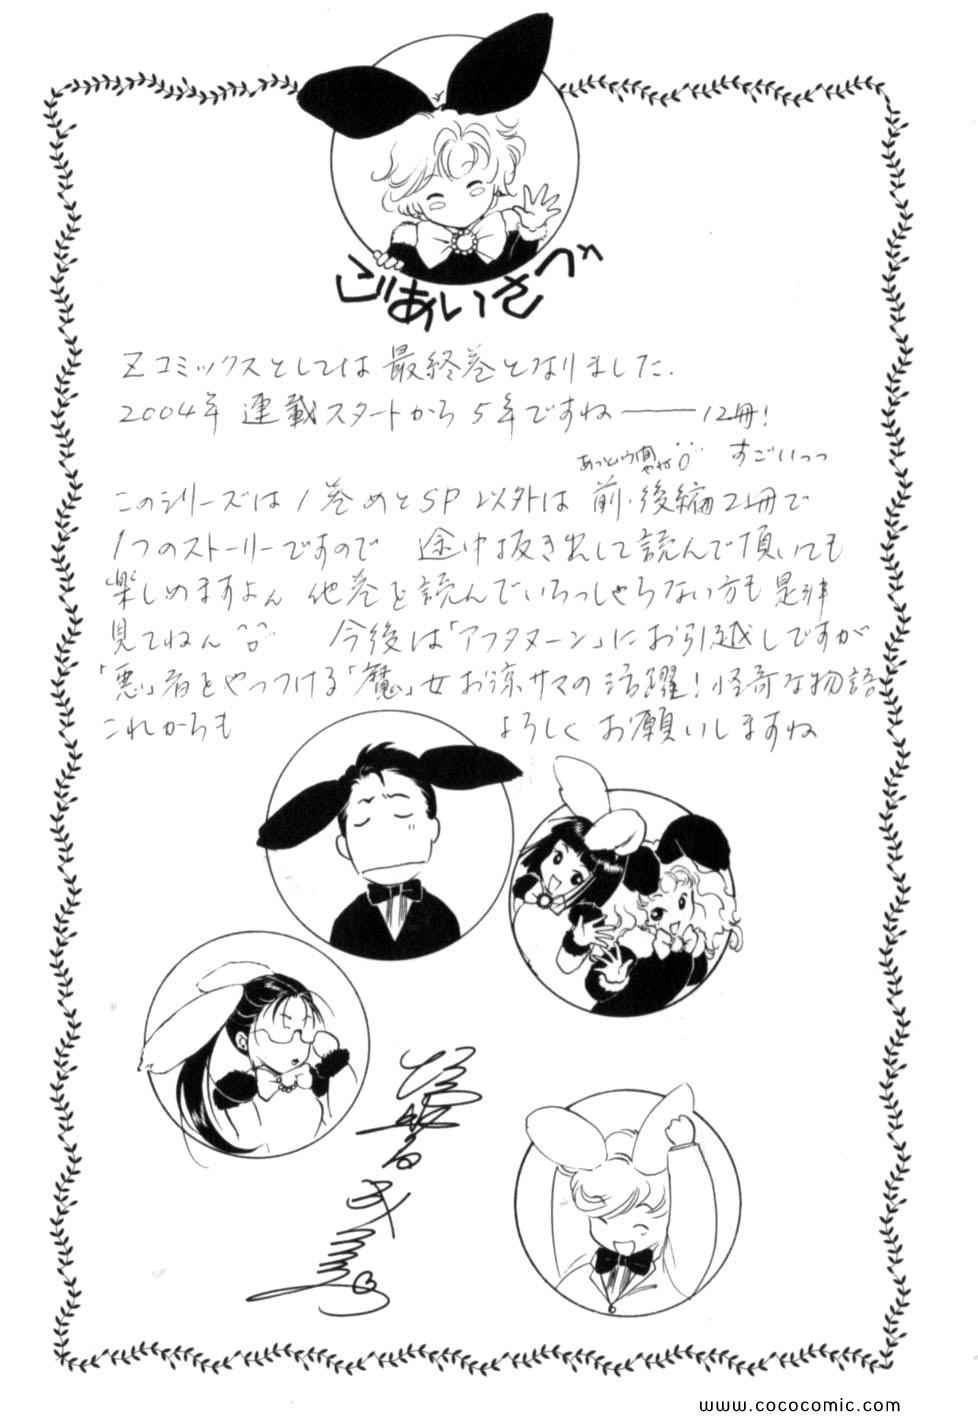 ごあいさつ
Zコミックスとしては最終巻となりました.
2004年 連載スタートから 5年ですね――12冊!
あっという間やね すごいっっ
このシリーズは1巻めとSP以外は 前・後編2冊で
1つのストーリーですので 途中抜き出して読んで頂いても
楽しめますよん 他巻を読んでいらっしゃらない方も是非
見てねん 今後は「アフタヌーン」にお引越しですが
「悪」者をやっつける「魔」女お涼サマの活躍!怪奇な物語
これからも よろしくお願いしますね
www.cococomic.com